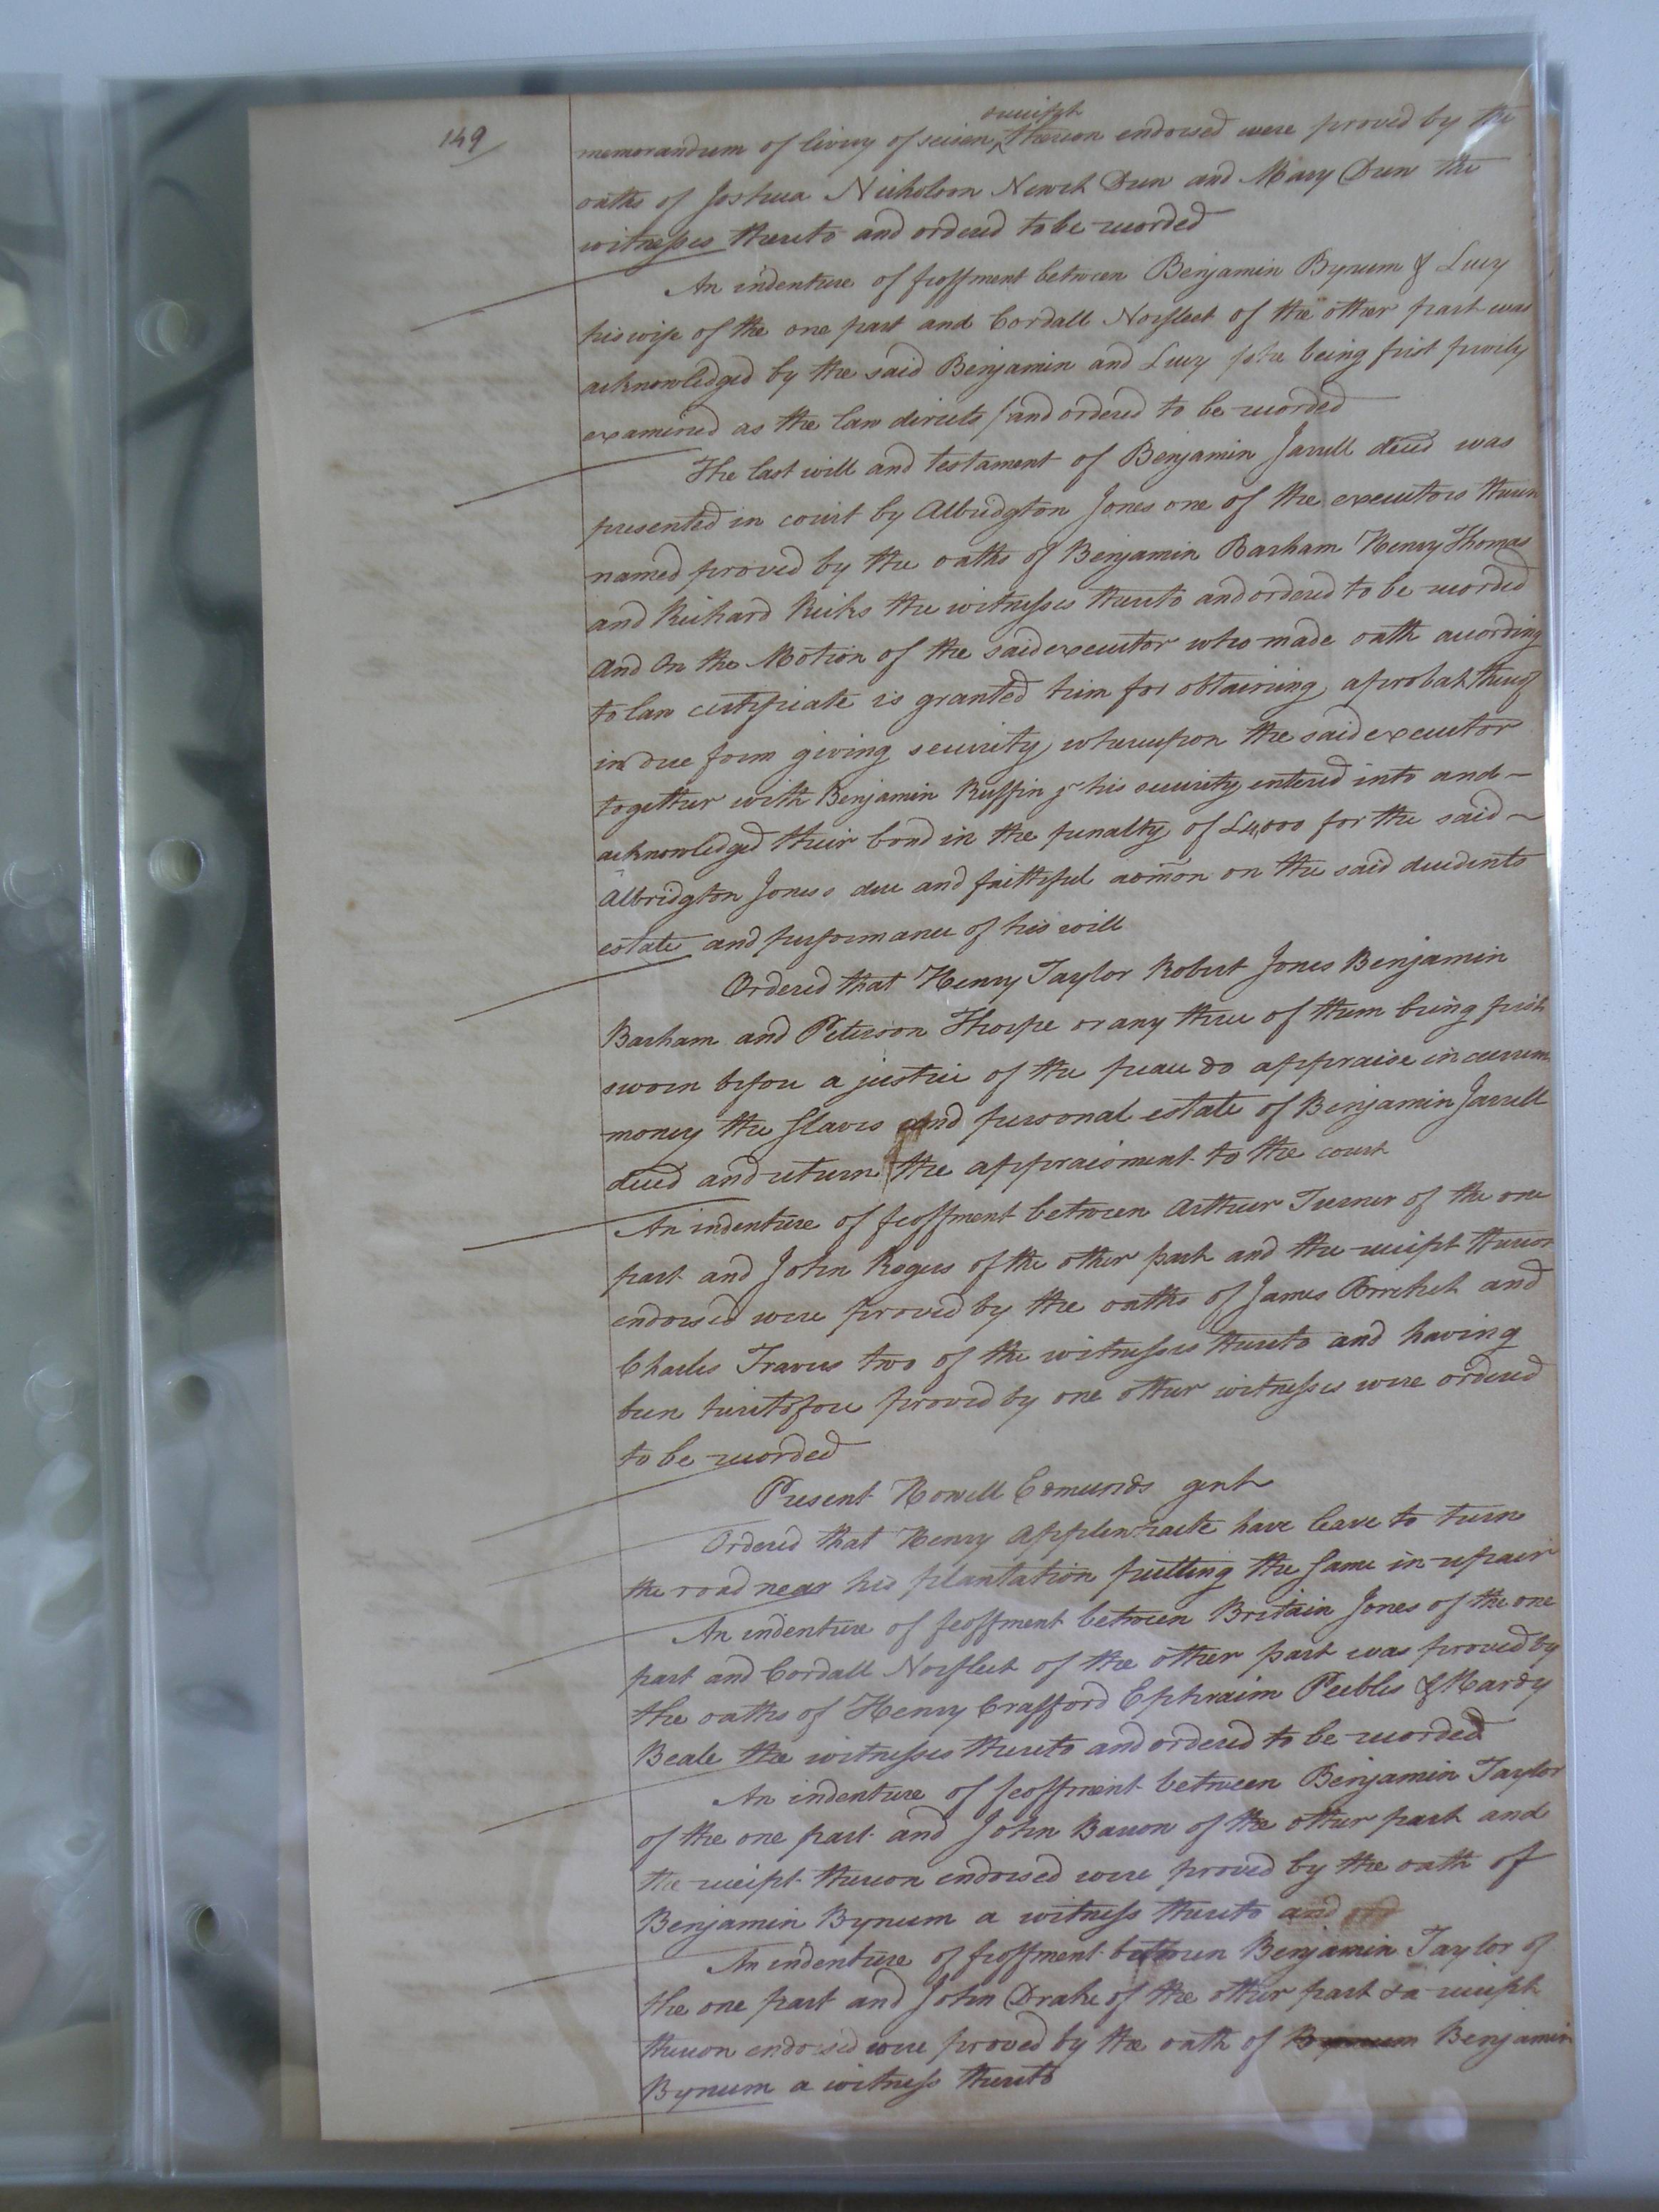 149
receipt
memorandum of livery of seisen ‸ thereon endorsed were proved by the
oaths of Joshua Nicholson Newit Dun and Mary Dun the
witnesses thereto and ordered to be recorded
An indenture of feoffment between Benjamin Bynum & Lucy
his wife of the one part and Cordall Norfleet of the other part was
acknowledged by the said Benjamin and Lucy /she being first privily
examined as the law directs/ and ordered to be recorded
The last will and testament of Benjamin Jarrell decd was
presented in court by Albridgton Jones one of the executors therein
named proved by the oaths of Benjamin Barham Henry Thomas
and Richard Ricks the witnesses thereto and ordered to be recorded
And On the Motion of the said executor who made oath according
to law certificate is granted him for obtaining a probat thereof
in due form giving security whereupon the said executor
together with Benjamin Ruffin his security entered into and
acknowledged their bond in the penalty of for the said
Albridgton Jones's due and faithful admōn on the said decedents
estate and performance of his will
Ordered that Henry Taylor Robert Jones Benjamin
Barham and Peterson Thorpe or any three of them being first
sworn before a justice of the peace do appraise in current
money the slaves and personal estate of Benjamin Jarrell
decd and return the appraisment to the court
An indenture of feoffment between Arthur Turner of the one
part and John Rogers of the other part and the receipt thereon
endorsed were proved by the oaths of James and
Charles Travers two of the witnesses thereto and having
been heretofore proved by one other witnesses were ordered
to be recorded
Present Howell Edmunds gent
Ordered that Henry Applewhaite have leave to turn
the road near his plantation putting the same in repair
An indenture of feoffment between Britain Jones of the one
part and Cordall Norfleet of the other part was proved by
the oaths of Henry Crafford Ephraim Peebles & Hardy
Beale the witnesses thereto and ordered to be recorded
An indenture of feoffment between Benjamin Taylor
of the one part and John Barrow of the other part and
the receipt thereon endorsed were proved by the oath of
Benjamin Bynum a witness thereto and
An indenture of feoffment between Benjamin Taylor of
the one part and John Drake of the other part & a receipt
thereon endorsed were proved by the oath of Bynum Benjamin
Bynum a witness thereto